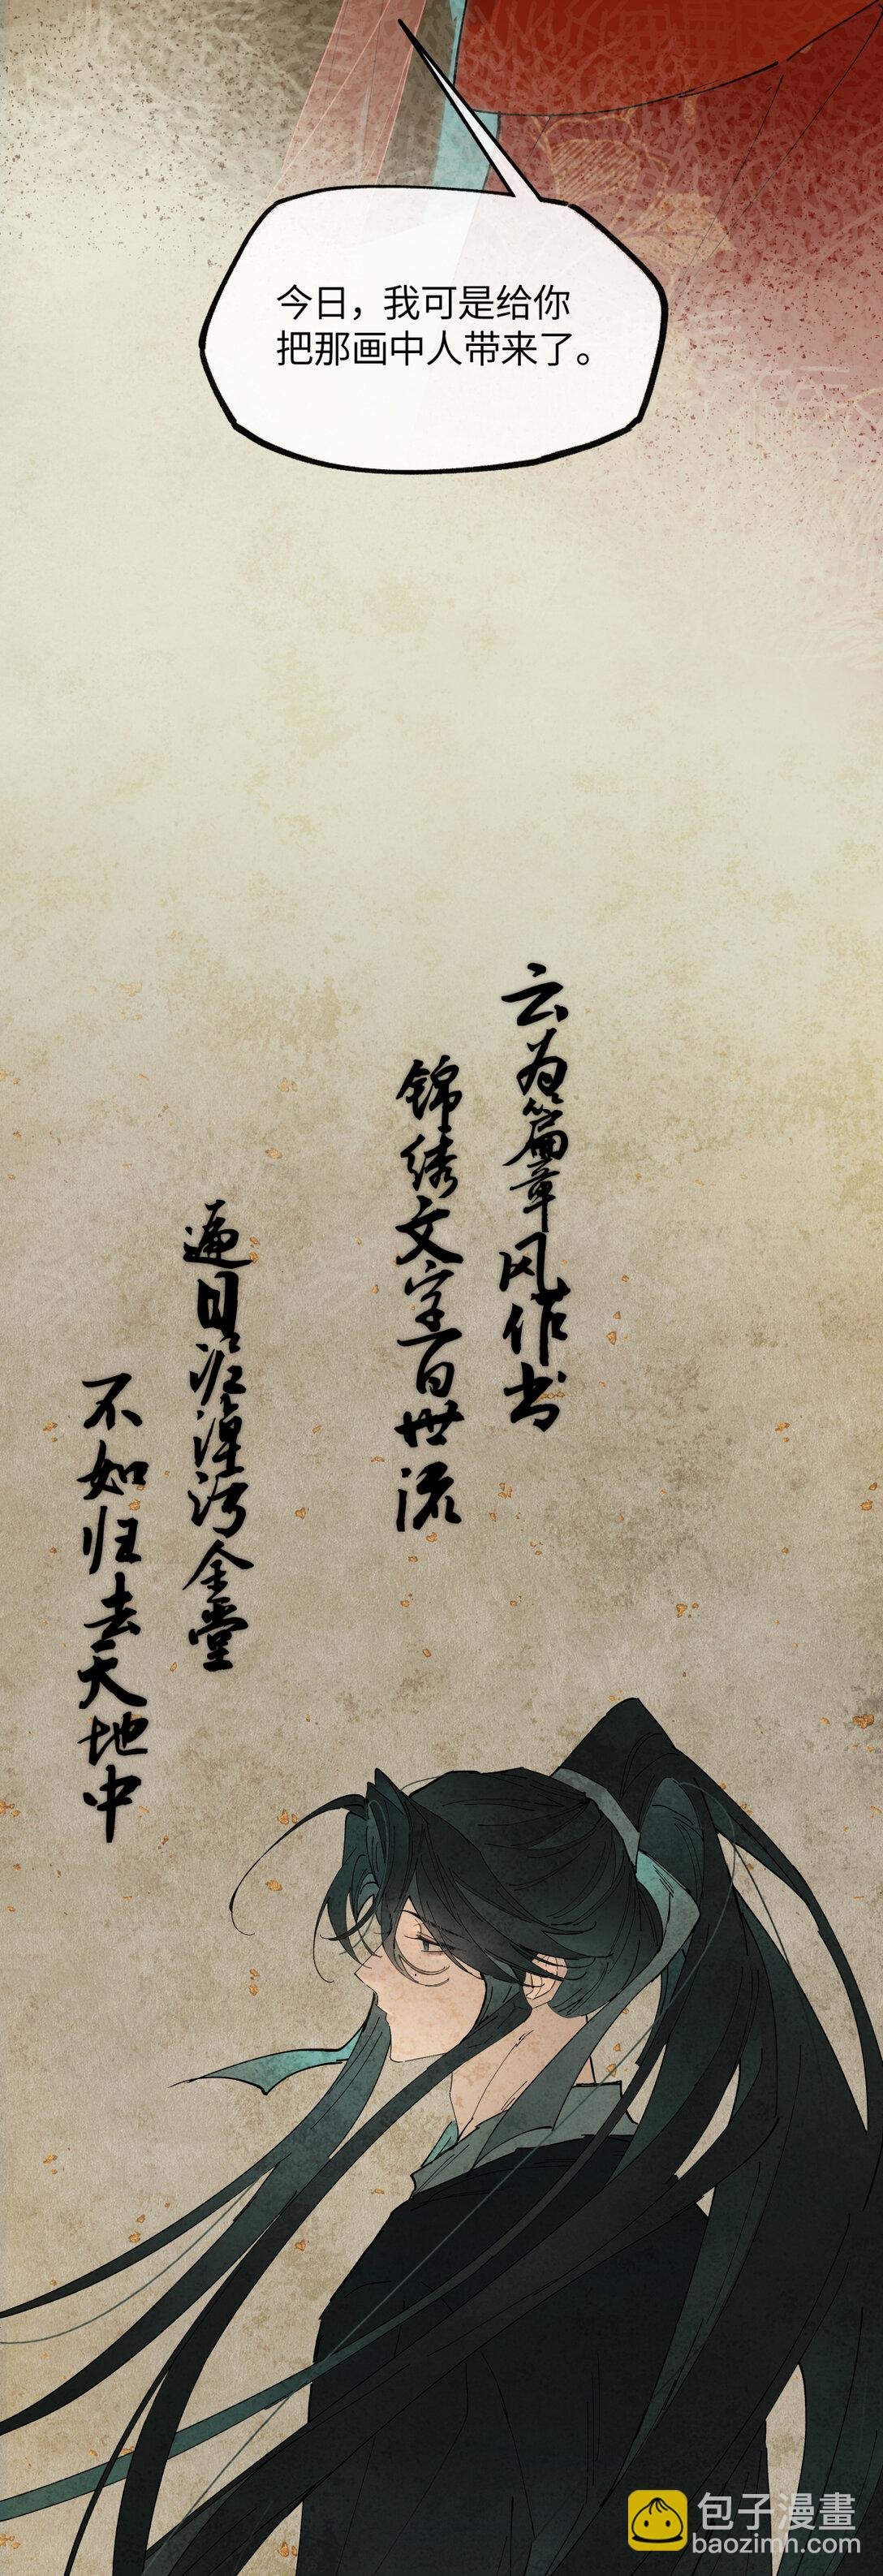 今日，我可是给你
把那画中人带来了。
云为篇章风作书
锦绣文字百世流
遍目淤淖污金堂
不如归去天地中
包子漫畫
baozimh.com